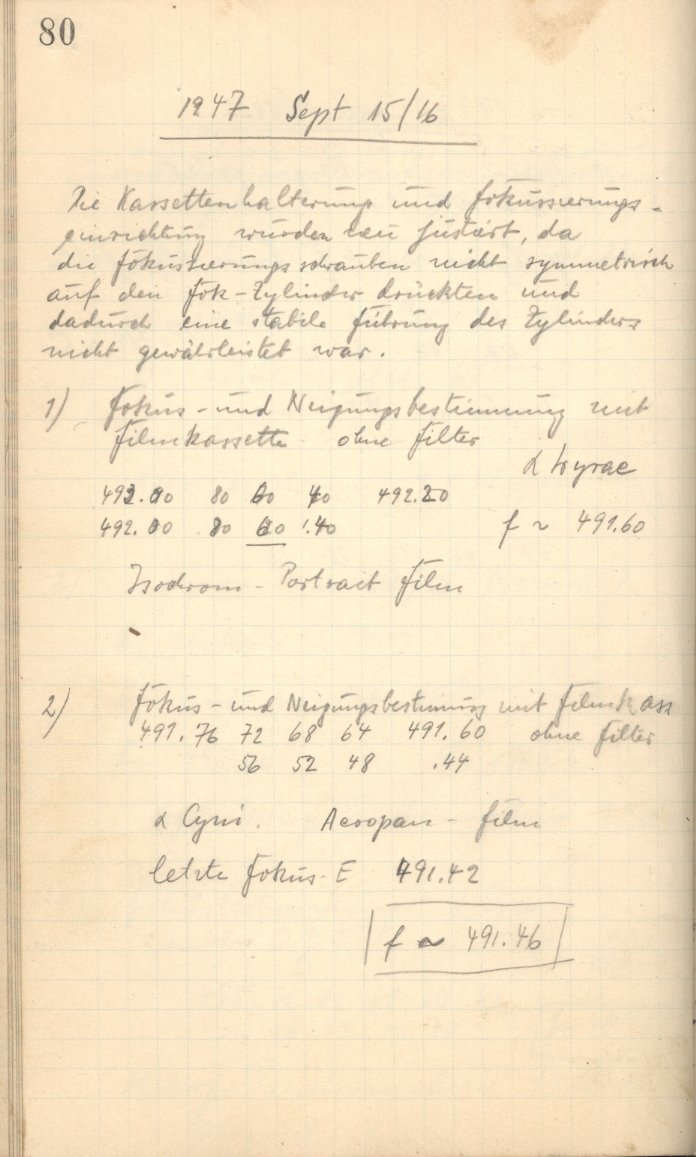 80
1947 Sept 15/16
Die Kassettenhalterung und Fokussierungs-
einrichtung wurden neu justiert, da
die Fokussierungsschrauben nicht symmetrisch
auf den Fok-Zylinder drückten und
dadurch eine stabile Führung des Zylinders
nicht gewährleistet war.
1) Fokus- und Neigungsbestimmung mit
Filmkassette ohne Filter
α Lyrae
492.00 80 60 40 492.20
492.00 80 60 1.40 f ~ 491.60
Isochrom - Portrait Film
2) Fokus- und Neigungsbestimmung mit Filmkass
491.76 72 68 64 491.60 ohne Filter
56 52 48 .44
α Cygni. Aeropan - Film
letzte Fokus-E 491.42
f ~ 491.46